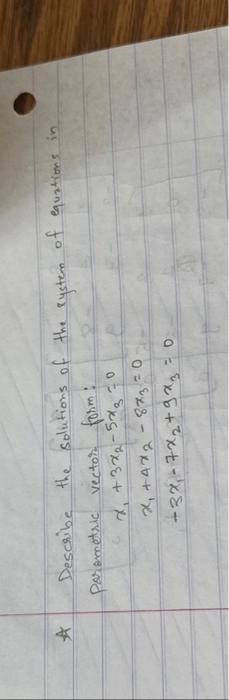 ☆ Describe the solutions of the system of equations in
parametric vector form:
x₁ + 3x₂ - 5x₃ = 0
x₁ + 4x₂ - 8x₃ = 0
-3x₁ - 7x₂ + 9x₃ = 0